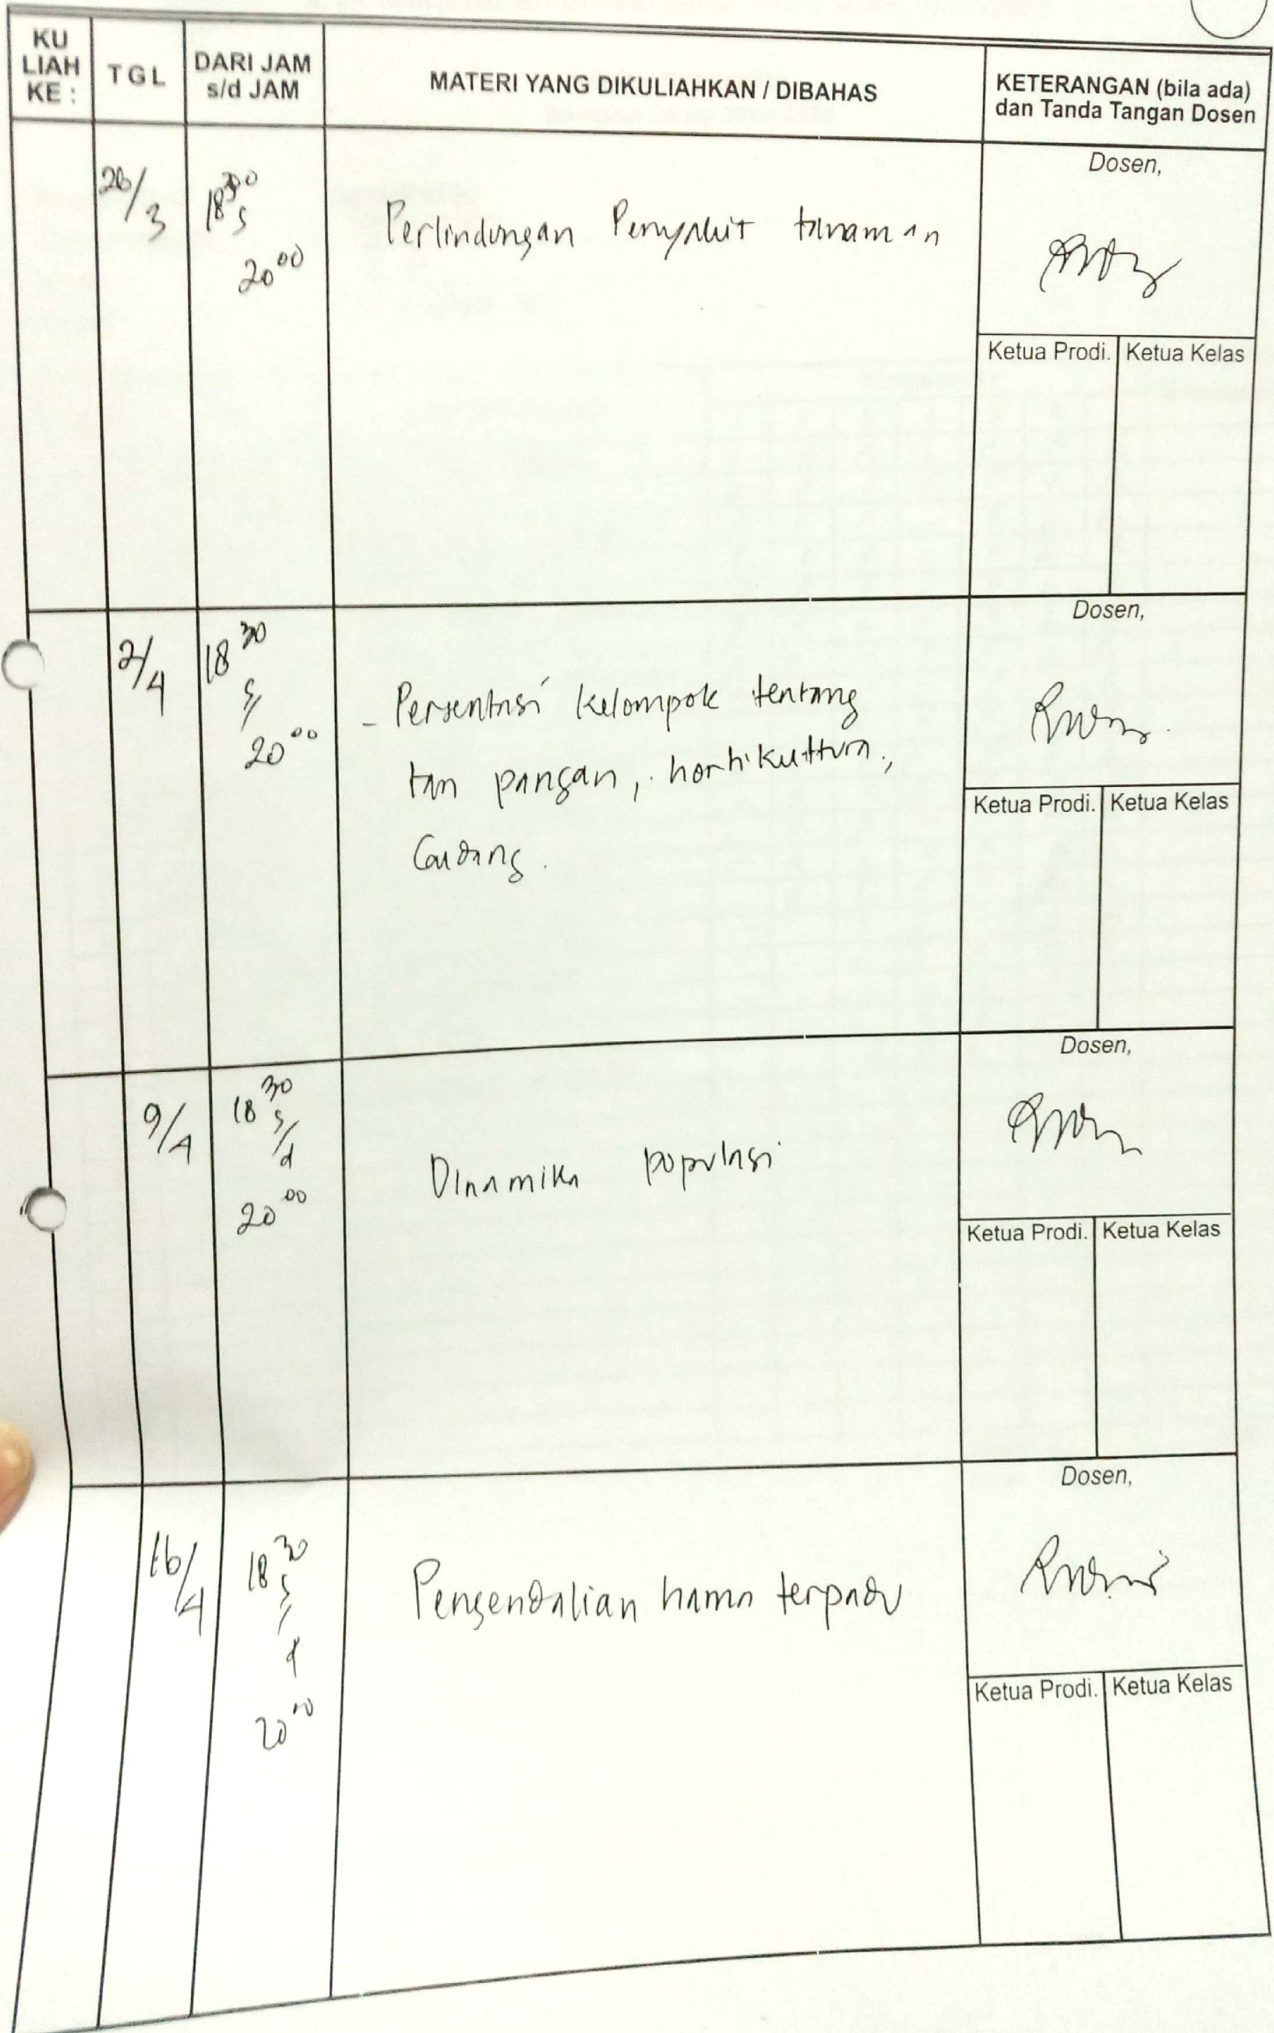 KU
LIAH
KE :
TGL
DARI JAM
s/d JAM
MATERI YANG DIKULIAHKAN / DIBAHAS
KETERANGAN (bila ada)
dan Tanda Tangan Dosen
26/3
18³⁰
s
20⁰⁰
Perlindungan Penyakit tanaman
Dosen,
Ketua Prodi. Ketua Kelas
2/4
18³⁰
s/
20⁰⁰
- Persentasi kelompok tentang
tan pangan, hortikultura,
Gudang.
Dosen,
Ketua Prodi. Ketua Kelas
9/4
18³⁰
s/d
20⁰⁰
Dinamika populasi
Dosen,
Ketua Prodi. Ketua Kelas
16/4
18³⁰
s/d
20⁰⁰
Pengendalian hama terpadu
Dosen,
Ketua Prodi. Ketua Kelas